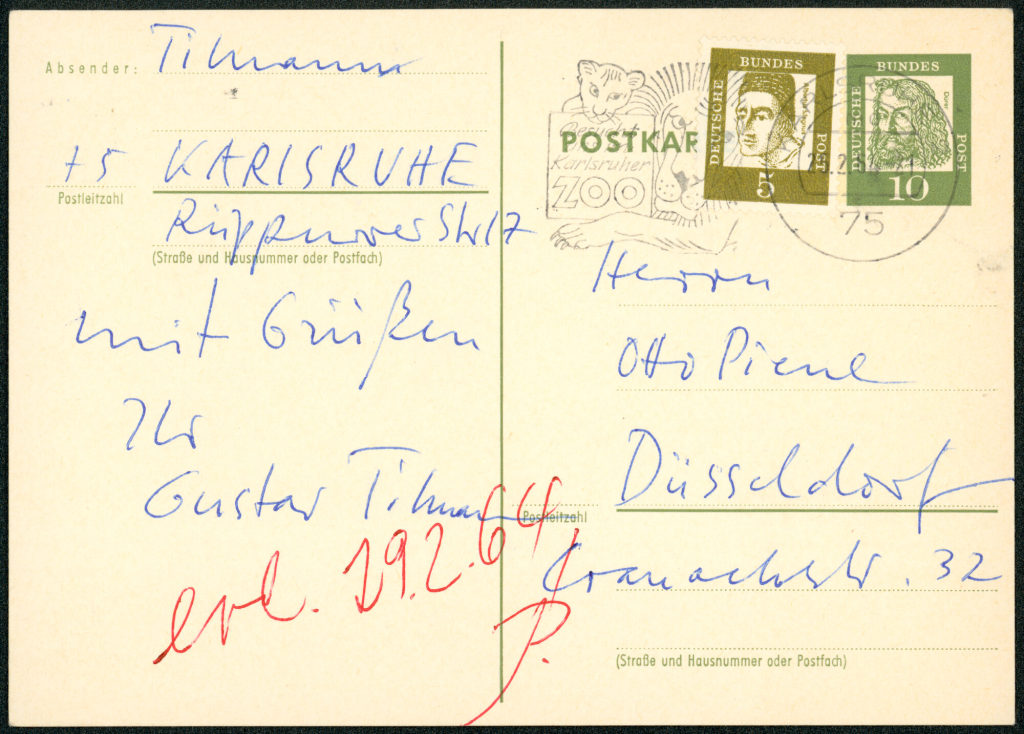 Absender: Tilmann
75 KARLSRUHE
Postleitzahl
Rüppurrer Str 17
(Straße und Hausnummer oder Postfach)
mit Grüßen
Ihr
Gustav Tilmann
erl. 29.2.64
P.
POSTKAR
Karlsruher
ZOO
DEUTSCHE BUNDES POST
5
DEUTSCHE BUNDES POST
Dürer
10
75
Herrn
Otto Piene
Düsseldorf
Postleitzahl
Cranachstr. 32
(Straße und Hausnummer oder Postfach)